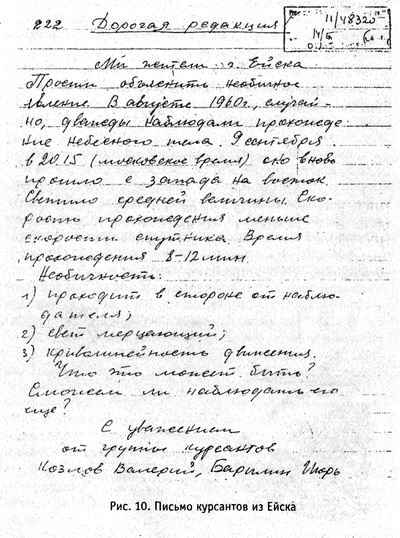 222 Дорогая редакция
11/48320
14/
Мы жители г. Ейска
Просим объяснить необычное
явление. В августе 1960г., случай-
но, дважды наблюдали прохожде-
ние небесного тела. 9 сентября
в 20.15 (московское время) оно вновь
прошло с запада на восток.
Светило средней величины. Ско-
рость прохождения меньше
скорости спутника. Время
прохождения 8-12 мин.
Необычность:
1) проходит в стороне от наблю-
дателя;
2) свет мерцающий;
3) криволинейность движения.
Что это может быть?
Сможем ли наблюдать его
еще?
С уважением
от группы курсантов
Козлов Валерий, Игорь
Рис. 10. Письмо курсантов из Ейска